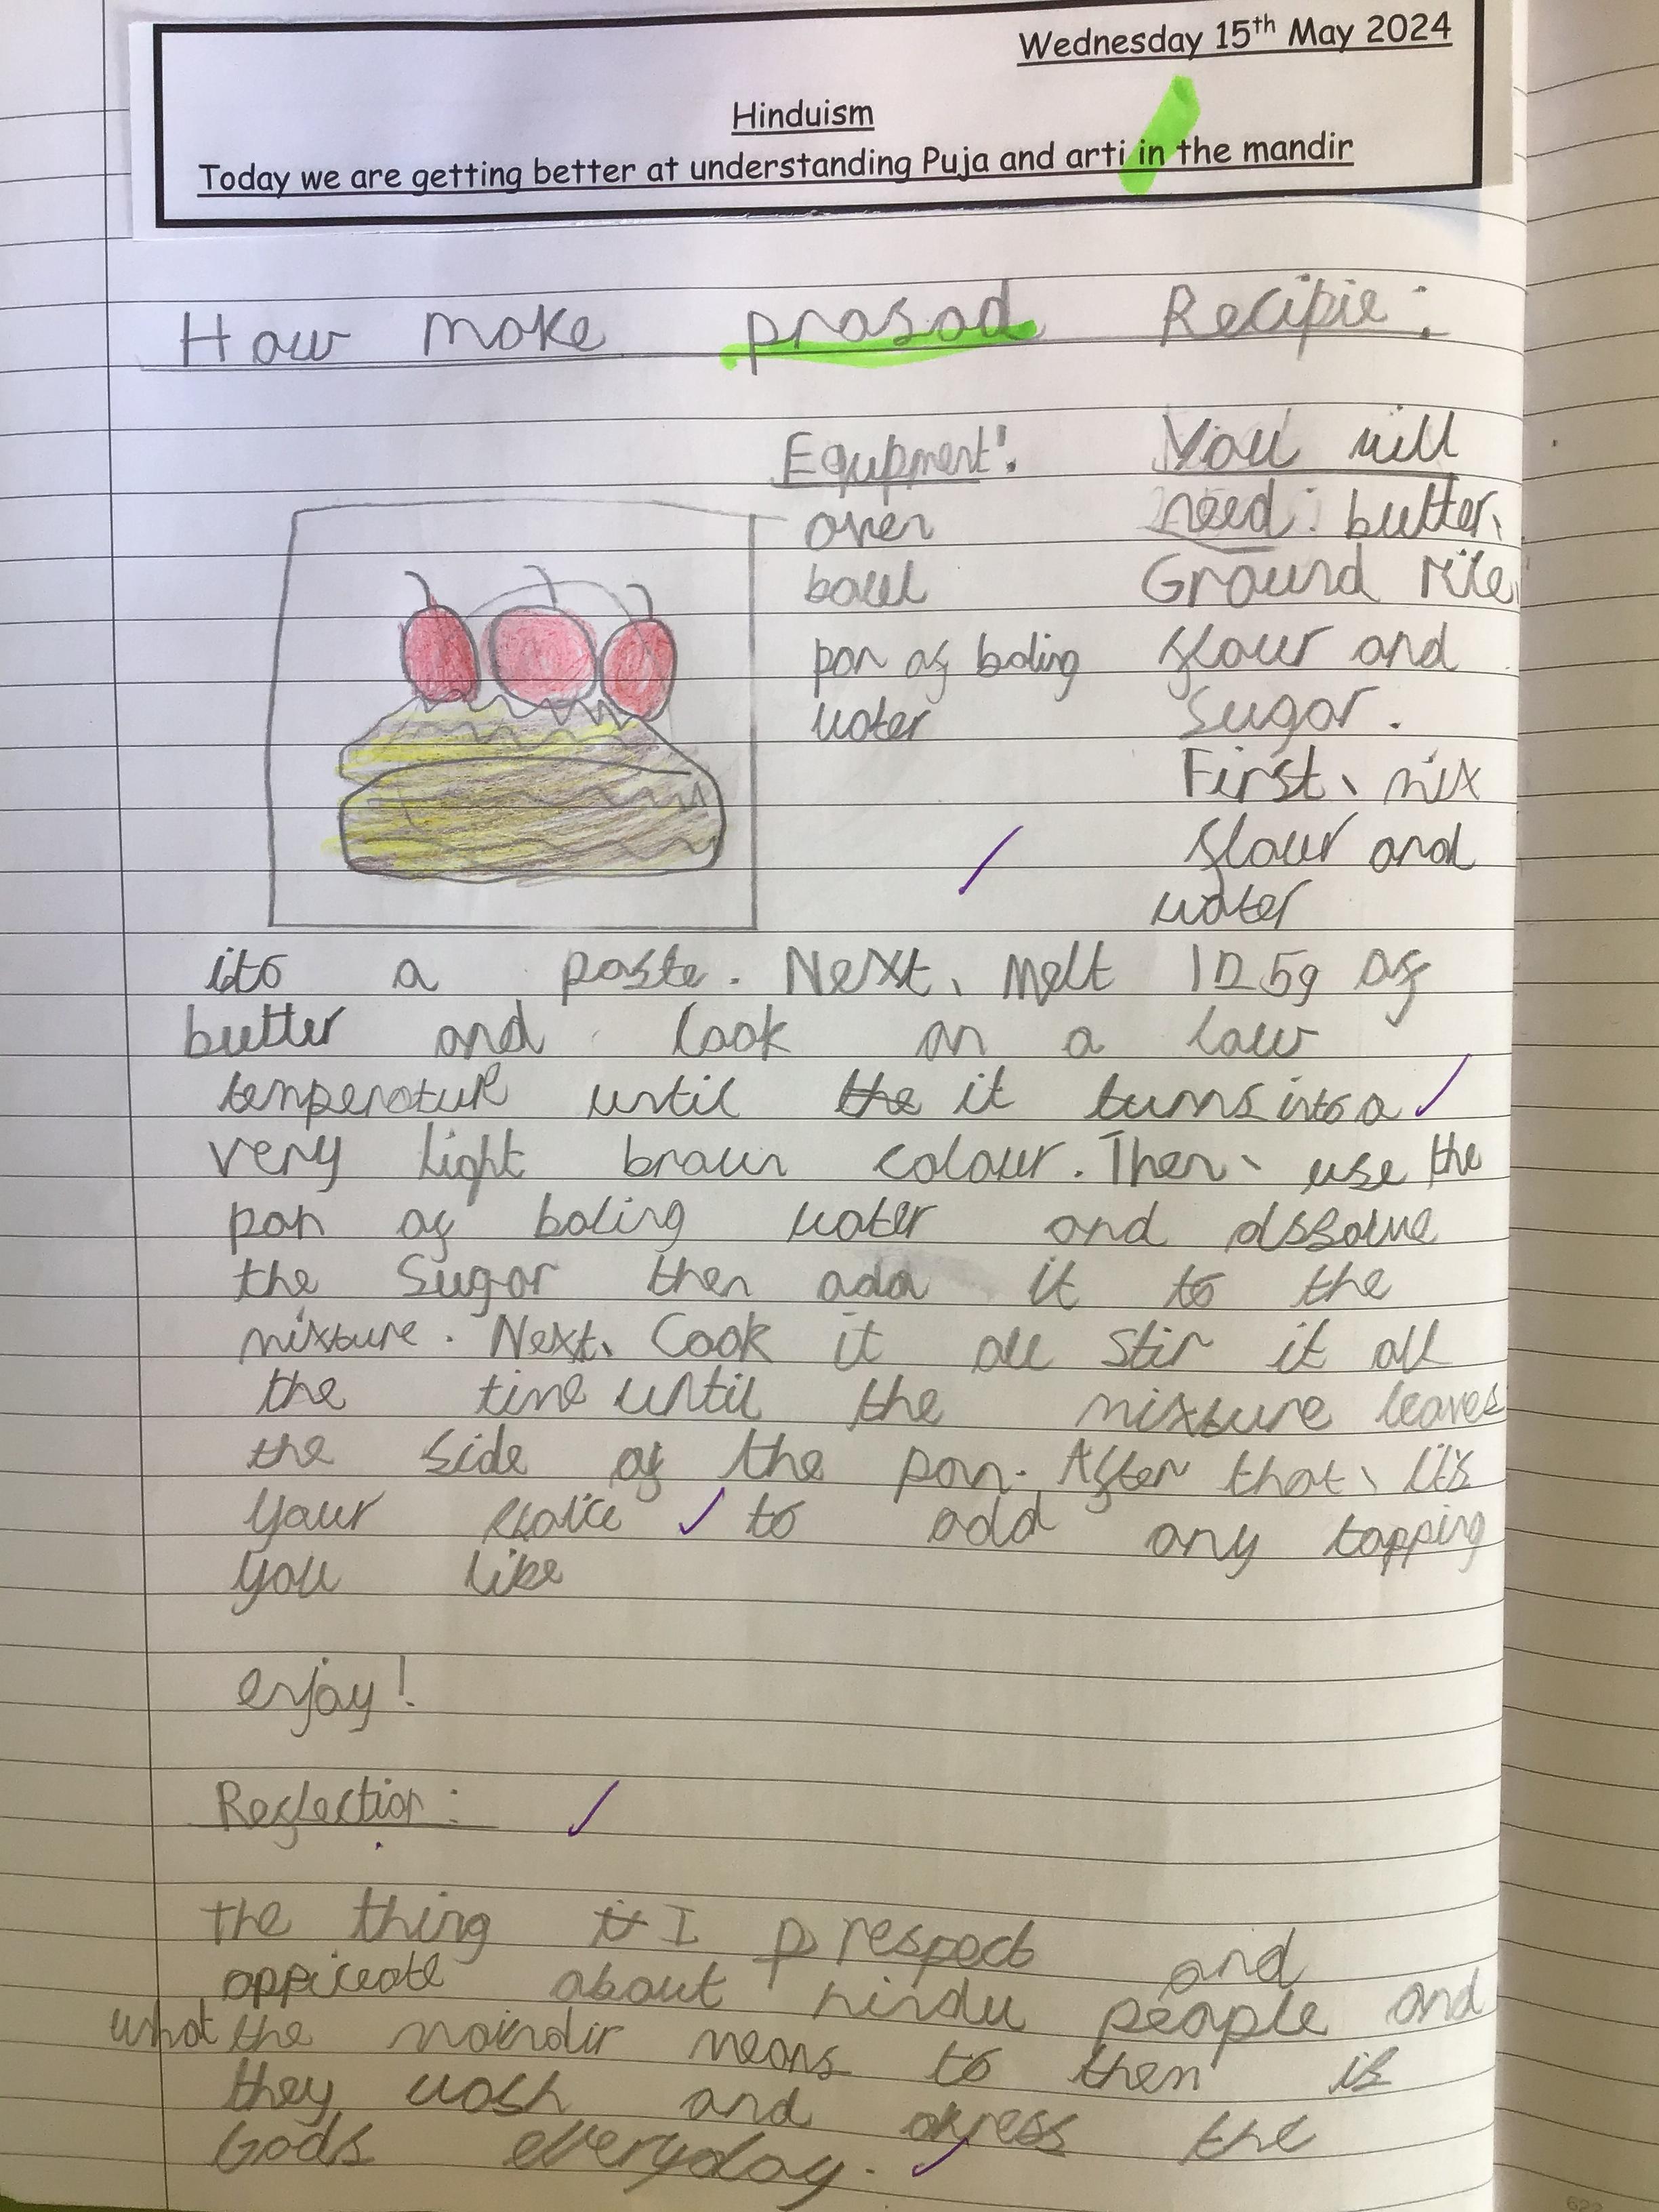 Wednesday 15th May 2024
Hinduism
Today we are getting better at understanding Puja and arti in the mandir
How make prasad Recipie:
Equpment:
oven
bowl
pan of boling
water
You will
need: butter,
Ground rice
flour and
Sugar.
First, mix
flour and
water
ito a paste. Next, Melt 125g of
butter and Cook on a low
temperature until the it turns into a
very light brown colour. Then, use the
pan of boling water and dssolve
the Sugar then add it to the
mixture. Next, Cook it all Stir it all
the time until the mixture leaves
the side of the pan. After that, it's
your choice to add any topping
you like
enjoy!
Reflection:
the thing it I p respect and
appiceate about hindu people and
what the maindir means to them is
they wash and dress the
Gods everyday.